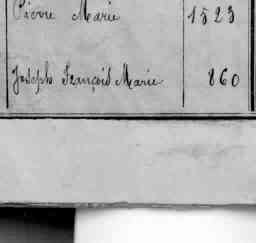 Pierre Marie 1523
Joseph François Marie 860